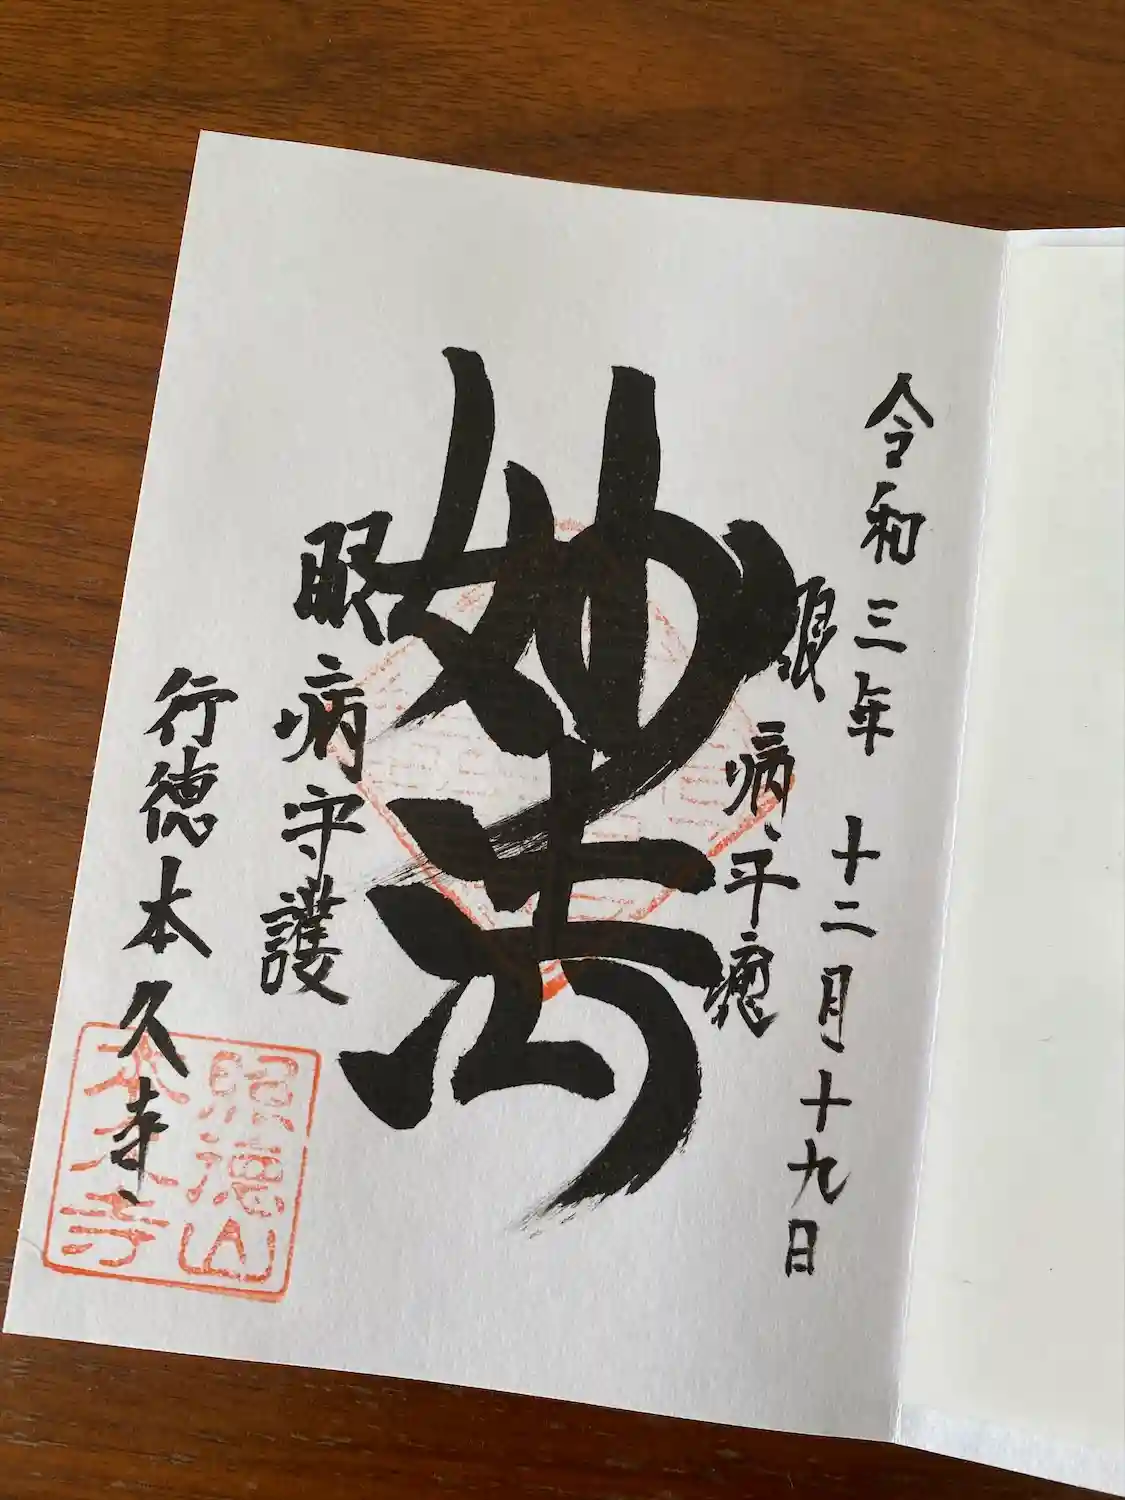 令和三年十二月十九日
眼病平癒
妙法
眼病守護
行徳本久寺
照徳山
本久寺